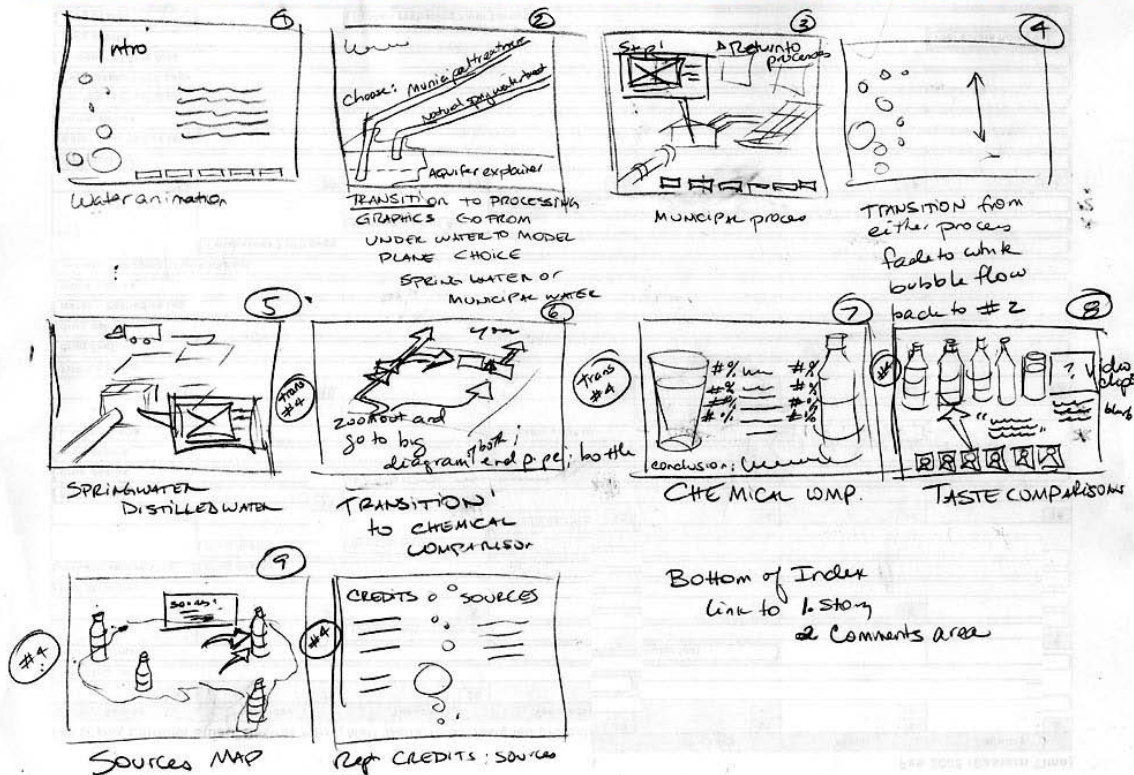 1
Intro
Water animation
2
Choose: Municipal treatment
Natural spring water treat
Aquifer explainer
TRANSITION TO PROCESSING
GRAPHICS GO FROM
UNDER WATER TO MODEL
PLANE CHOICE
SPRING WATER OR
MUNICIPAL WATER
3
Step 1
Return to
processes
MUNICIPAL proces
4
TRANSITION from
either process
fade to white
bubble flow
back to #2
5
SPRINGWATER
DISTILLED WATER
trans
#4
6
you
zoom out and
go to big
diagram of both;
end pipe; bottle
TRANSITION
to CHEMICAL
COMPARISON
trans
#4
7
#%
#%
#%
#%
#%
#%
#%
#%
conclusion:
CHEMICAL COMP.
#4
8
?
clips
blurb
TASTE COMPARISONS
#4
9
Sources
SOURCES MAP
#4
CREDITS & SOURCES
CREDITS: SOURCES
Bottom of Index
Link to 1. Story
2 Comments area